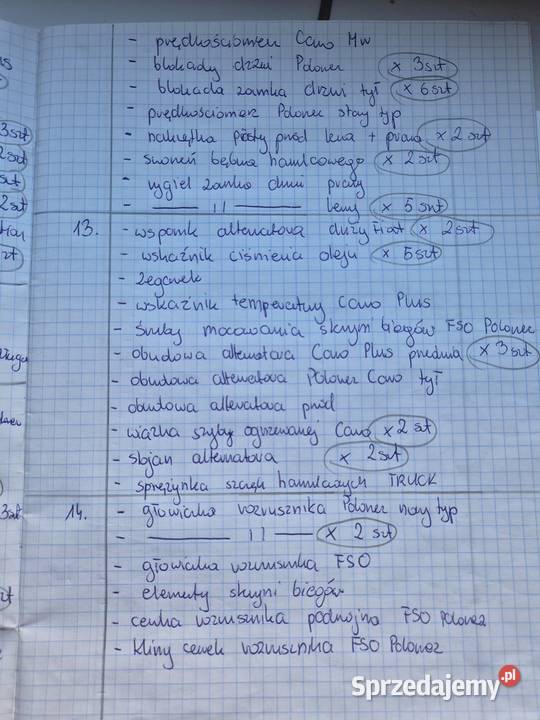 - prędkościomierz Caro MW
- blokady drzwi Polonez x 3szt
- blokada zamka drzwi tył x 6szt
- prędkościomierz Polonez stary typ
- nakrętka piasty przód lewa + prawa x 2 szt
- sworzeń bębna hamulcowego x 2 szt
- rygiel zamka drzwi prawy
- —— 11 —— lewy x 5 szt
13. - wspornik alternatora duży Fiat x 2szt
- wskaźnik ciśnienia oleju x 5szt
- zegarek
- wskaźnik temperatury Caro Plus
- śruby mocowania skrzyni biegów FSO Polonez
- obudowa alternatora Caro Plus przednia x 3 szt
- obudowa alternatora Polonez Caro tył
- obudowa alternatora przód
- wiązka szyby ogrzewanej Caro x 2 szt
- stojan alternatora x 2szt
- sprężynka szczęk hamulcowych TRUCK
14. - głowiczka rozrusznika Polonez nowy typ
- —— 11 —— x 2 szt
- głowiczka rozrusznika FSO
- elementy skrzyni biegów
- cewka rozrusznika podwójna FSO Polonez
- kliny cewek rozrusznika FSO Polonez
3szt
2szt
szt
2szt
3szt
Sprzedajemy.pl